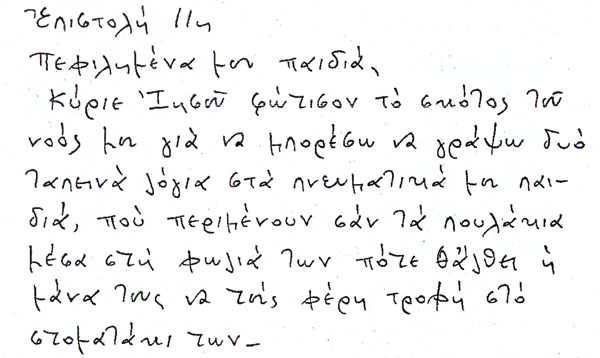 Ἐπιστολή 11η
Πεφιλημένα μου παιδιά,
Κύριε Ἰησοῦ φώτισον τό σκότος τοῦ
νοός μου γιά νά μπορέσω νά γράψω δυό
ταπεινά λόγια στά πνευματικά μου παι-
διά, πού περιμένουν σάν τά πουλάκια
μέσα στή φωλιά των πότε θἄλθει ἡ
μάνα τους νά τούς φέρη τροφή στό
στοματάκι των_